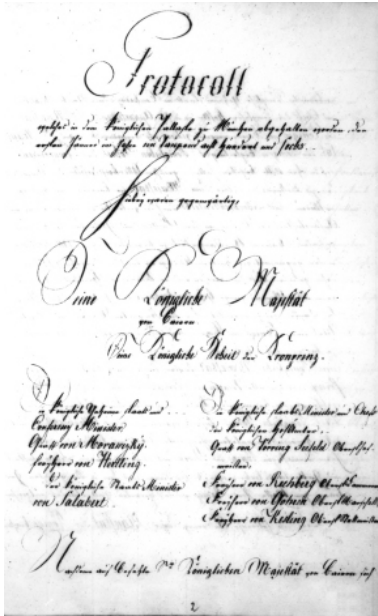 Protocoll
welches in dem Königlichen Pallaste zu München abgehalten worden, den
ersten Jänner im Jahre ein Tausend acht Hundert und sechs.
Hiebey waren gegenwärtig,
Seine Königliche Majestät
von Baiern
Seine Königliche Hoheit der Kronprinz.
Die Königliche Geheime Staats und
Conferenz Minister
Graf von Morawizky.
Freyherr von Hertling.
der Königliche Staats Minister
von Salabert.
Die Königliche Staats Minister und Chefs
der Königlichen Hofstäbe
Graf von Törring Seefeld Oberst
Freyherr von Rechberg
Freyherr von Gohren Oberst Marschall
Freyherr von Kesling Oberst Stallmeister
Nachdem auf Befehle Sr. Königlichen Majestät von Baiern sich
2